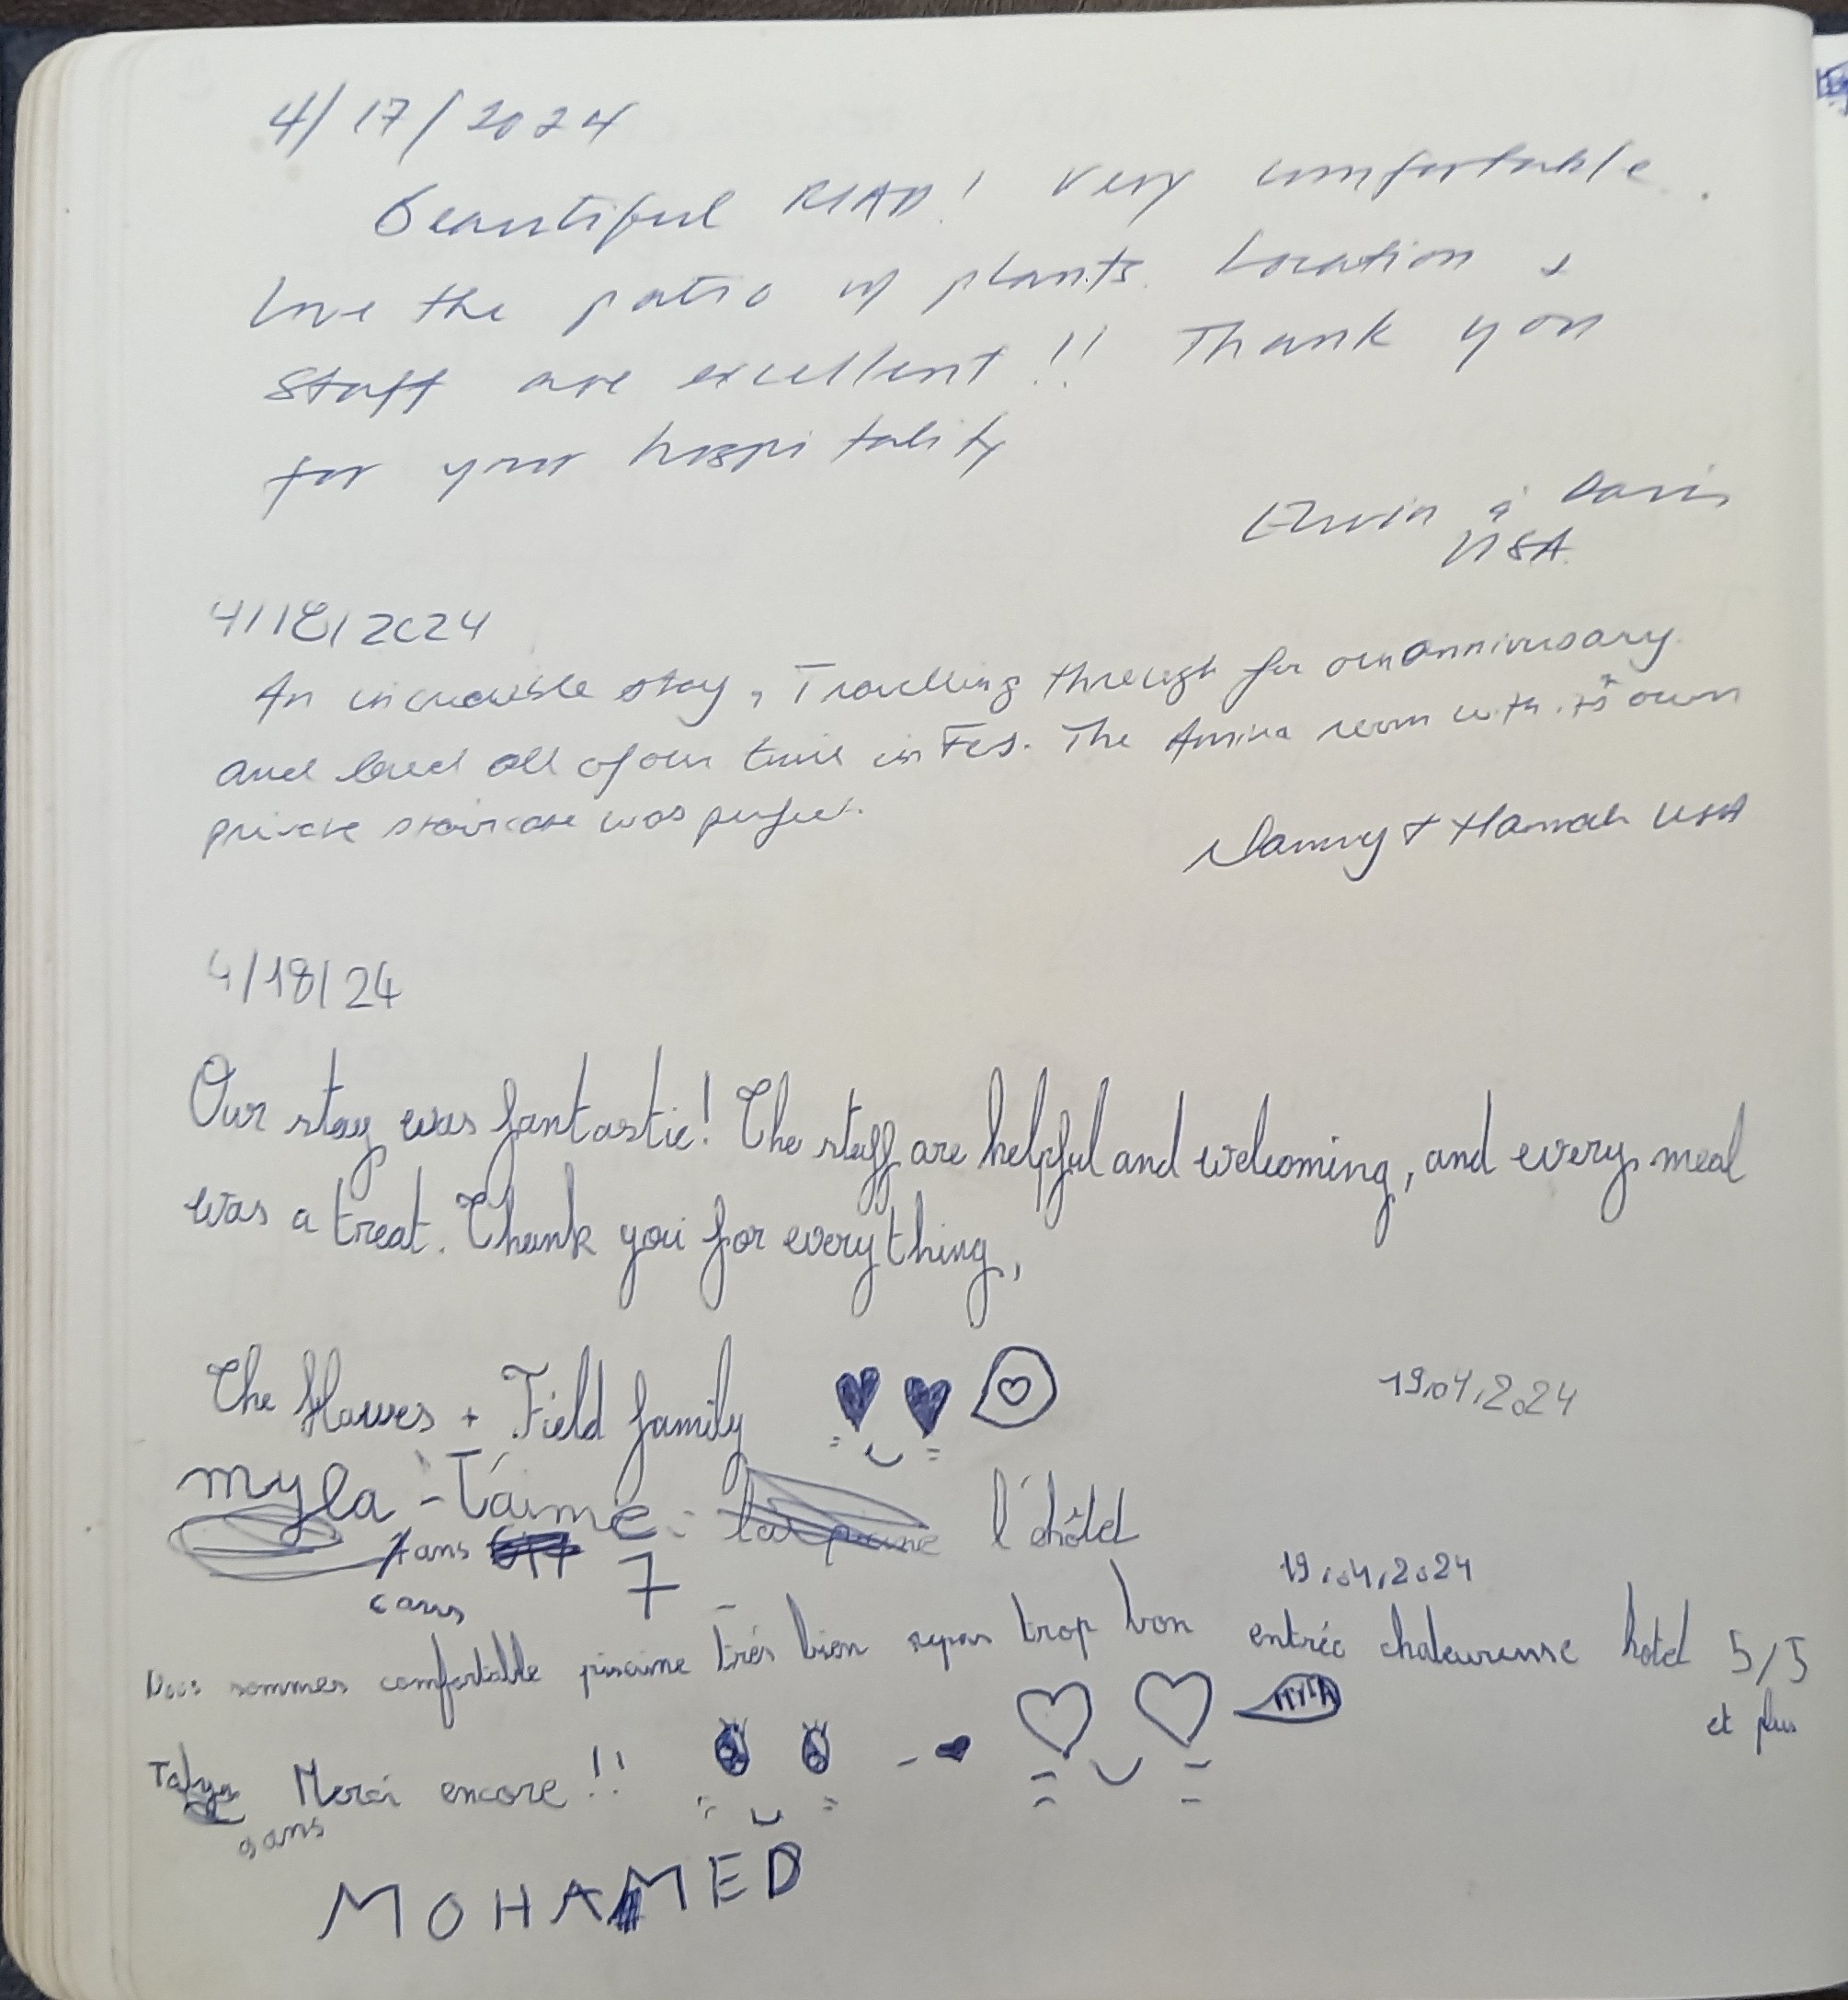 4/17/2024
Beautiful RIAD! Very comfortable.
Love the patio w/ plants. Location &
staff are excellent!! Thank you
for your hospitality
& Davis
USA
4/18/2024
An incredible stay, Travelling through for our anniversary
and loved all of our time in Fes. The Amina room with its own
private staircase was perfect.
Danny + Hannah USA
4/18/24
Our stay was fantastic! The staff are helpful and welcoming, and every meal
was a treat. Thank you for everything,
The Hawes + Field family
19.04.2024
myla - T'aime l'hôtel
7 ans
7
19.04.2024
Nous sommes comfortable piscine très bien repas trop bon entrée chaleureuse hotel 5/5
et plus
Merci encore!!
9 ans
MOHAMED